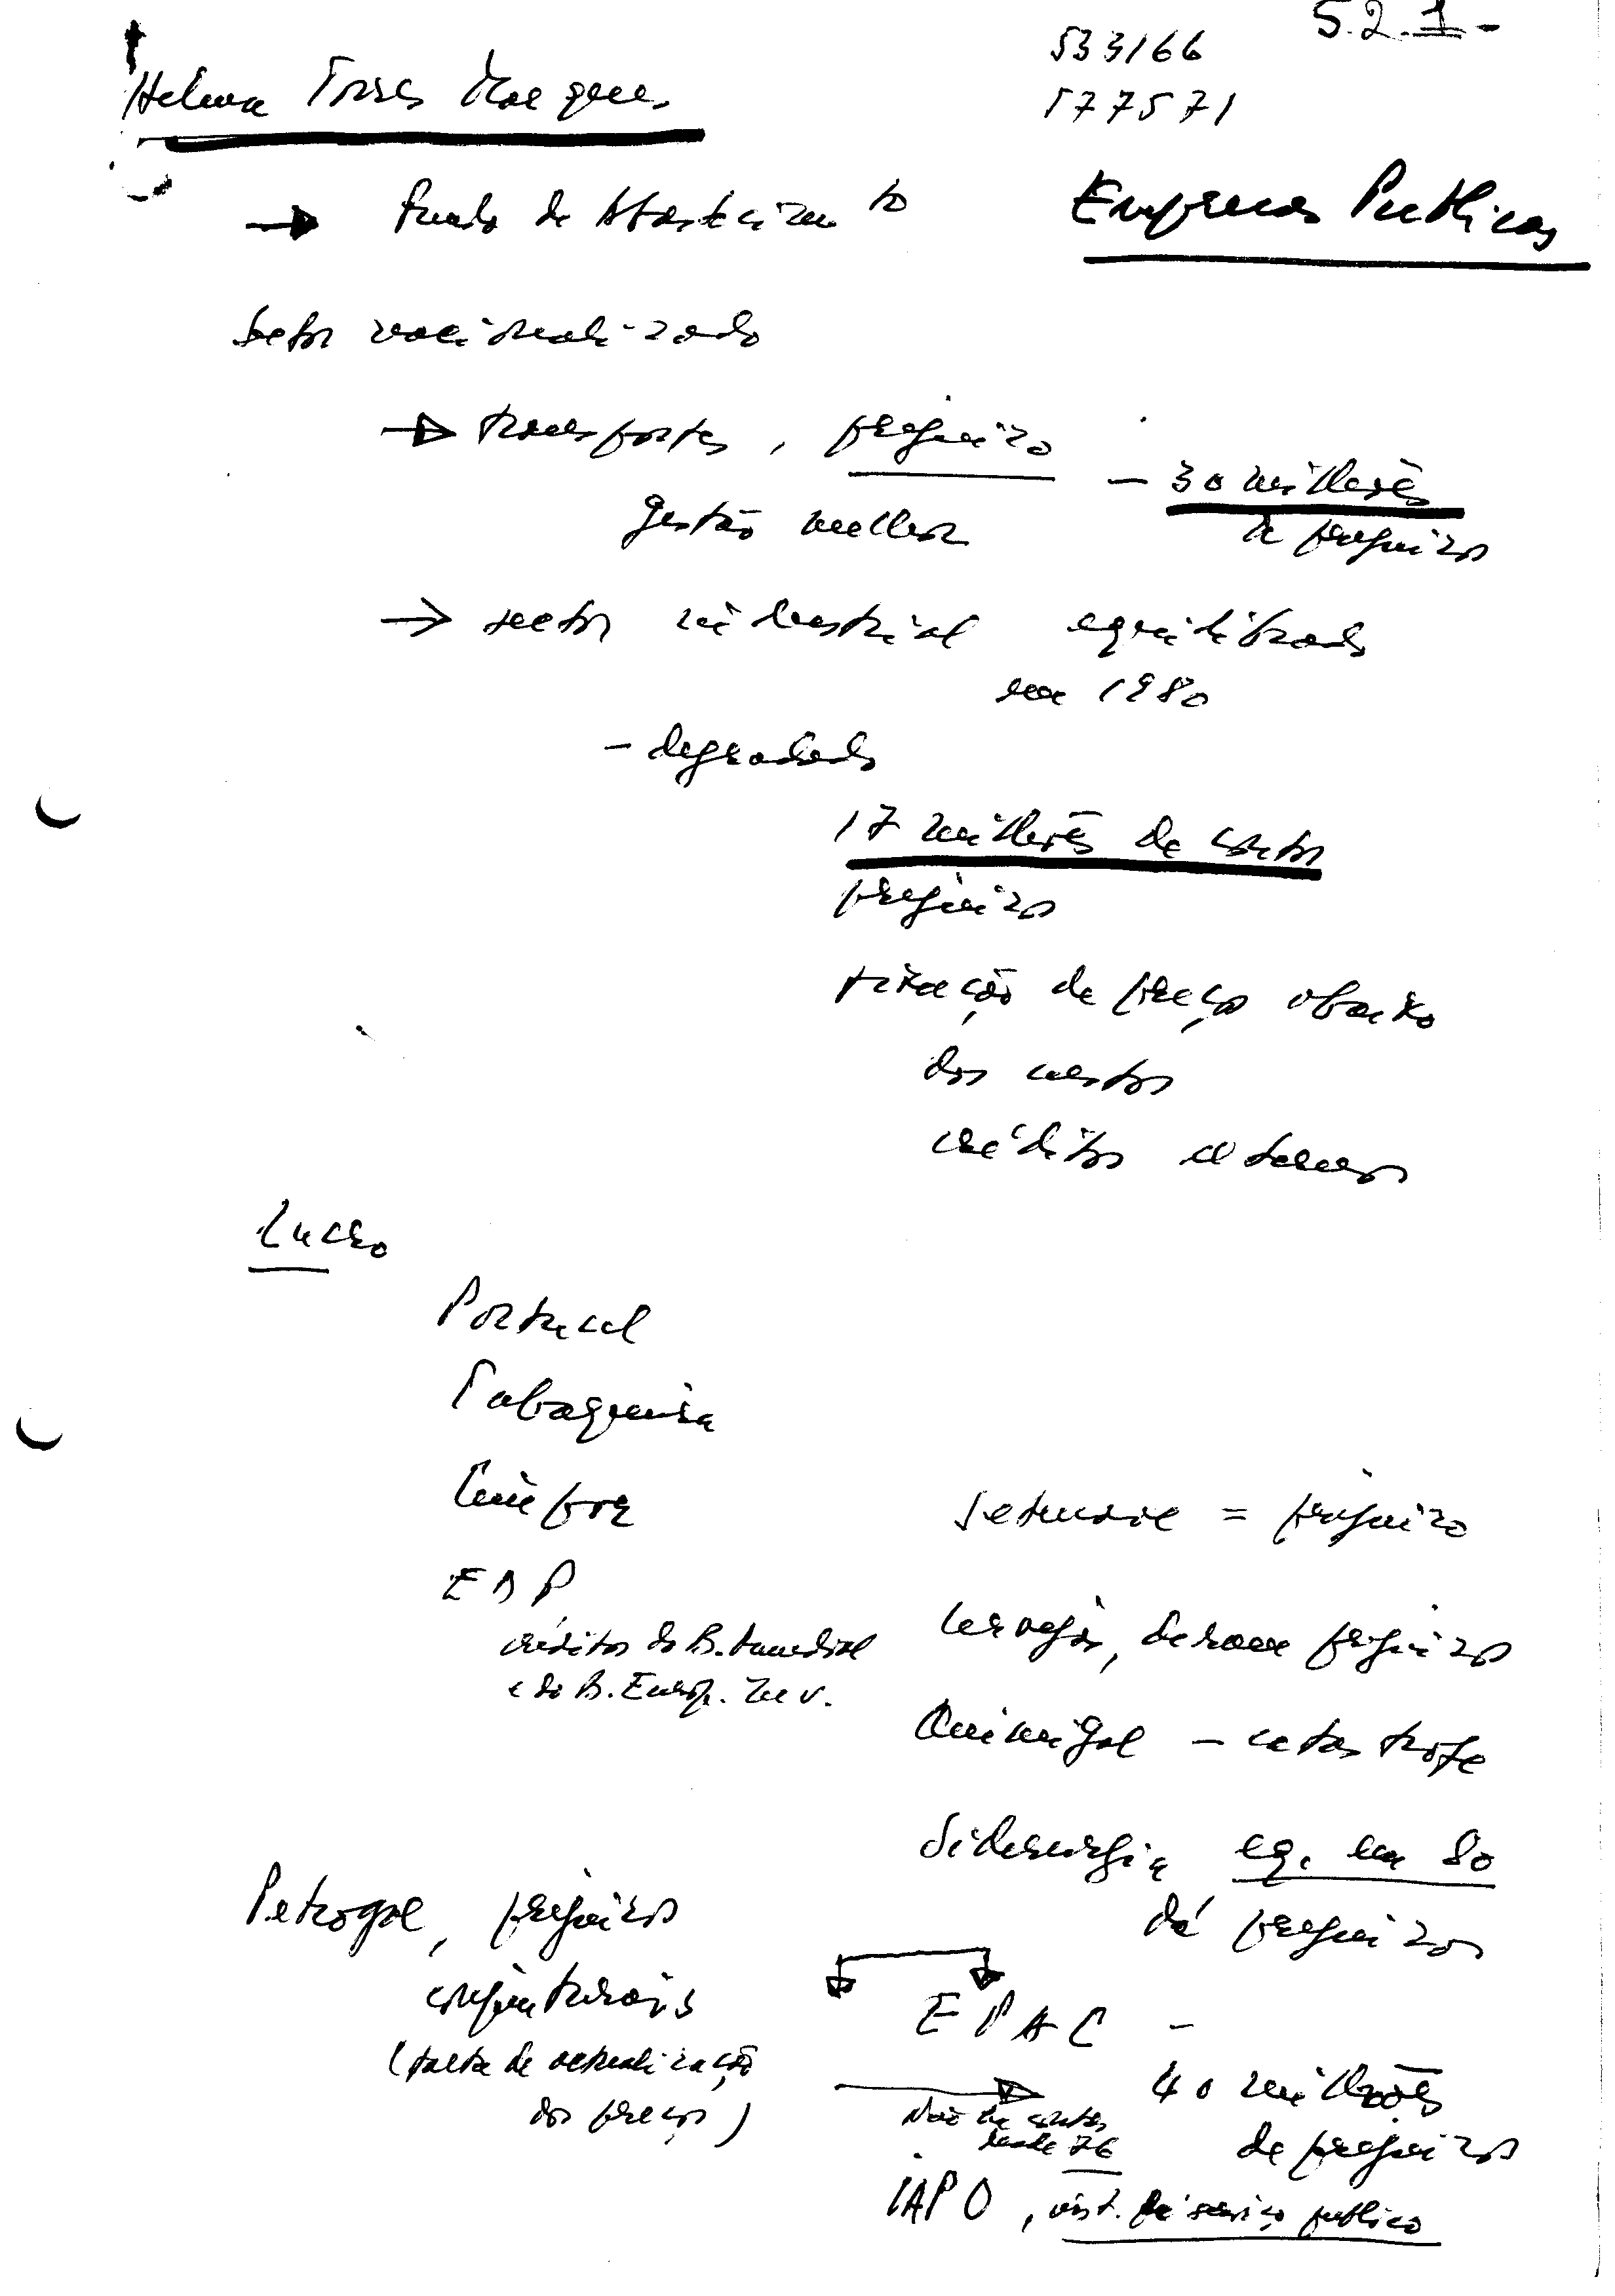 5.2.1-
533166
577571
Helena Torres Marques
Empresas Publicas
→ Fundo de Abastecimto
Sector nacionalizado
→ transportes, prejuizo
— 30 milhões
de prejuizos
gestão melhor
→ sector industrial equilibrado
em 1980
- degradado
17 milhões de contos
prejuizos
fixação de preços abaixo
dos custos
créditos externos
Lucro
Portucel
Tabaqueira
Cimpor
EDP
créditos do B. Mundial
e do B. Europ. Inv.
Setenave = prejuizo
Cervejas, deram prejuizos
Quimigal - catastrofe
Siderurgia eq. em 80
dá prejuizos
Petrogal, prejuizos
conjunturais
(falta de actualização
dos preços)
EPAC -
40 milhões
de prejuizos
Não há contas
desde 76
IAPO, inst. de serviço publico